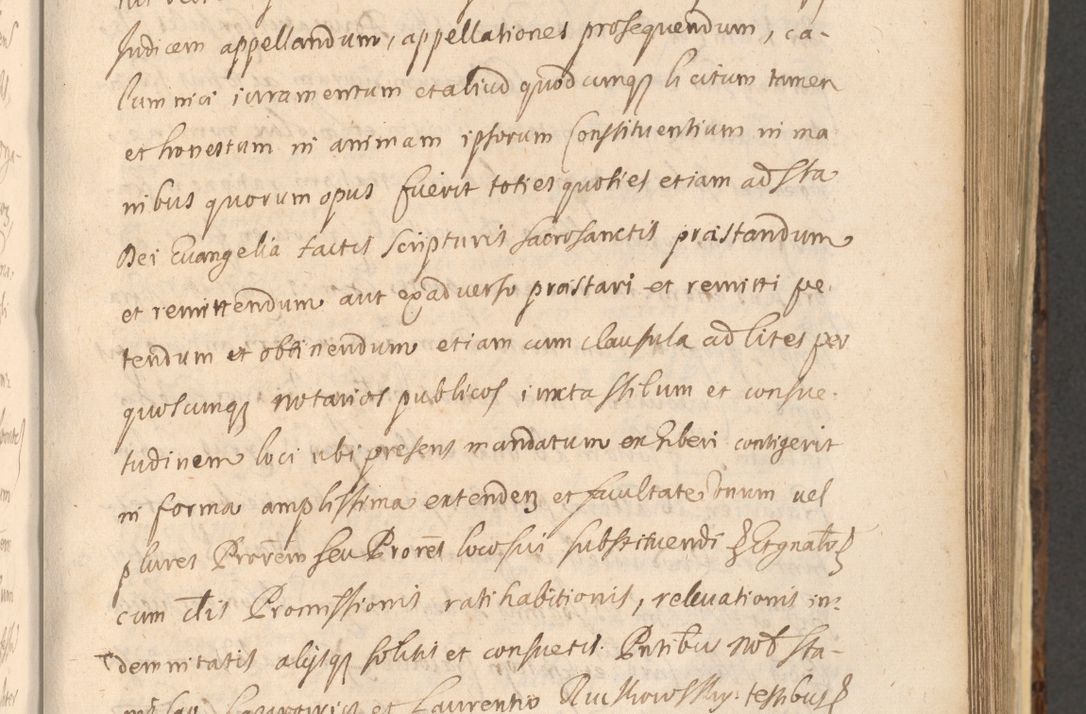 Judicem appellandum, appellationes prosequendum, ca-
lumniæ iuramentum et aliud quodcunqȝ licitum tamen
et honestum in animam ipsorum Constituentium in ma
nibus quorum opus fuerit toties quoties etiam ad Sta
Dei Euangelia tactis scripturis sacrosanctis præstandum
et remittendum aut ex adverso præstari et remitti pe-
tendum et obtinendum etiam cum clausula ad lites per
quoscunqȝ notarios publicos iuxta stilum et consue-
tudinem loci ubi presens mandatum exhiberi contigerit
in forma amplissima extendenȝ et facultate unum vel
plures Prorem seu Prores loco sui substituendi
cum Promissionis ratihabitionis, relevationis in-
demnitatis alijsqȝ solitis et consuetis. Pntibus Sta-
et Laurentio testibus